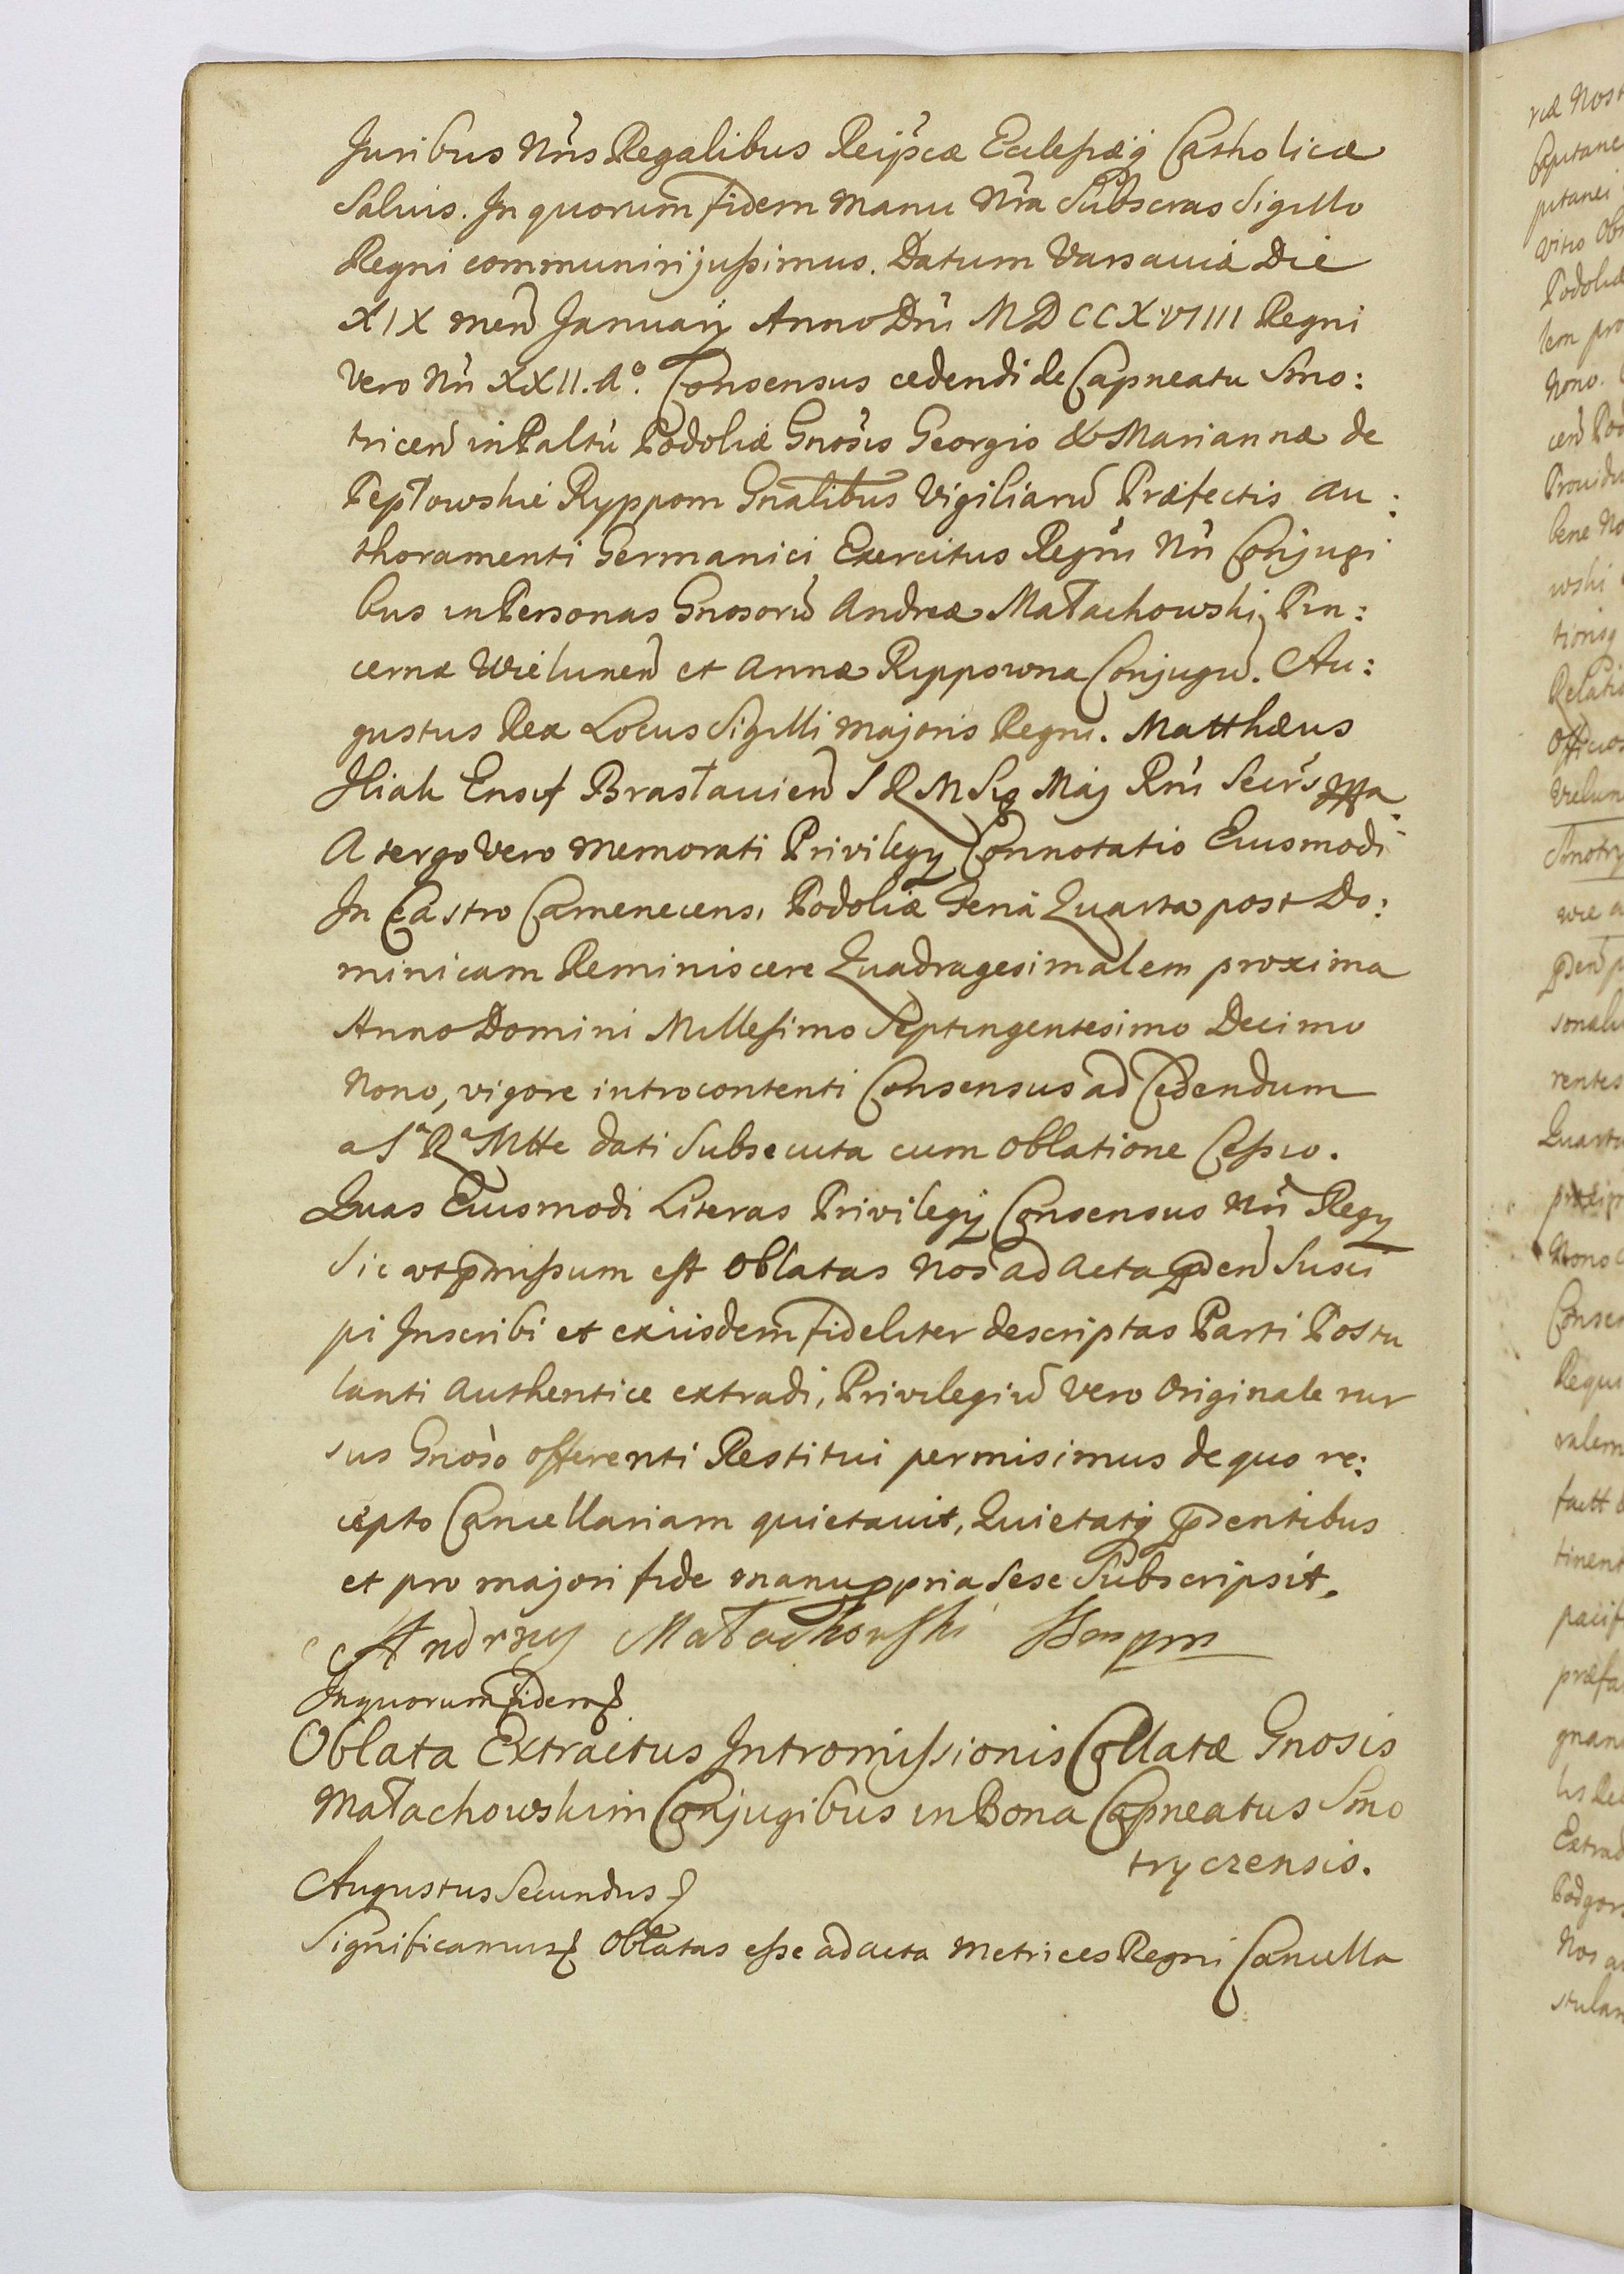 Juribus Nris Regalibus Reipscæ Eclesiæq̃ Catholicæ
Salvis. In quorum fidem manu Nra Subscras Sigillo
Regni communiri jussimus. Datum Varsaviæ Die
XIX men Januarij Anno Dni MDCCXVIIII Regni
Vero Nri XXII. Aº. Consensus cedendi de Capneatu Smo:
tricen in Paltu Podoliæ Gnosis Georgio & Mariannæ de
Teptowskie Ryppom Gnalibus Vigiliaru Præfectis au:
thoramenti Germanici Exercitus Regni Nri Conjugi
bus in Personas Gnosoru Andreæ Małachowski, Pin:
cernæ Wielunen et Annæ Ryppowna Conjugu. Au:
gustus Rex Locus Sigilli majoris Regni. Matthæus
Iliak Ensif Brasłavien S R M Sig Maj Rni Secrs mpa
A tergo Vero memorati Privilegy Connotatio Eiusmodi
In Castro Camenecens, Podoliæ Feria Quarta post Do:
minicam Reminiscere Quadragesimalem proxima
Anno Domini Millesimo Septingentesimo Decimo
Nono, vigore introcontenti Consensus ad Cedendum
a Sa Ra Mtte dati Subsecuta cum Oblatione Cessio.
Quas Eiusmodi Literas Privilegij Consensus Nri Regy
Sic ut pmissum est Oblatas Nos ad Acta pden Susci
pi Inscribi et exiisdem fideliter descriptas Parti Postu
lanti Authentice extradi, Privilegiu Vero Originale rur
sus Gnoso offerenti Restitui permisimus de quo re:
cepto Cancellariam quietavit, Quietatq̃ pdentibus
et pro majori fide manu ppria sese Subscripsit.
Andrzey Małachowski mpm
In quorum fidem
Oblata Extractus Intromissionis Collatæ Gnosis
Małachowskim Conjugibus in Bona Capneatus Smo
tryczensis.
Augustus Secundus
Significamus Oblatas esse ad acta Metrices Regni Cancella